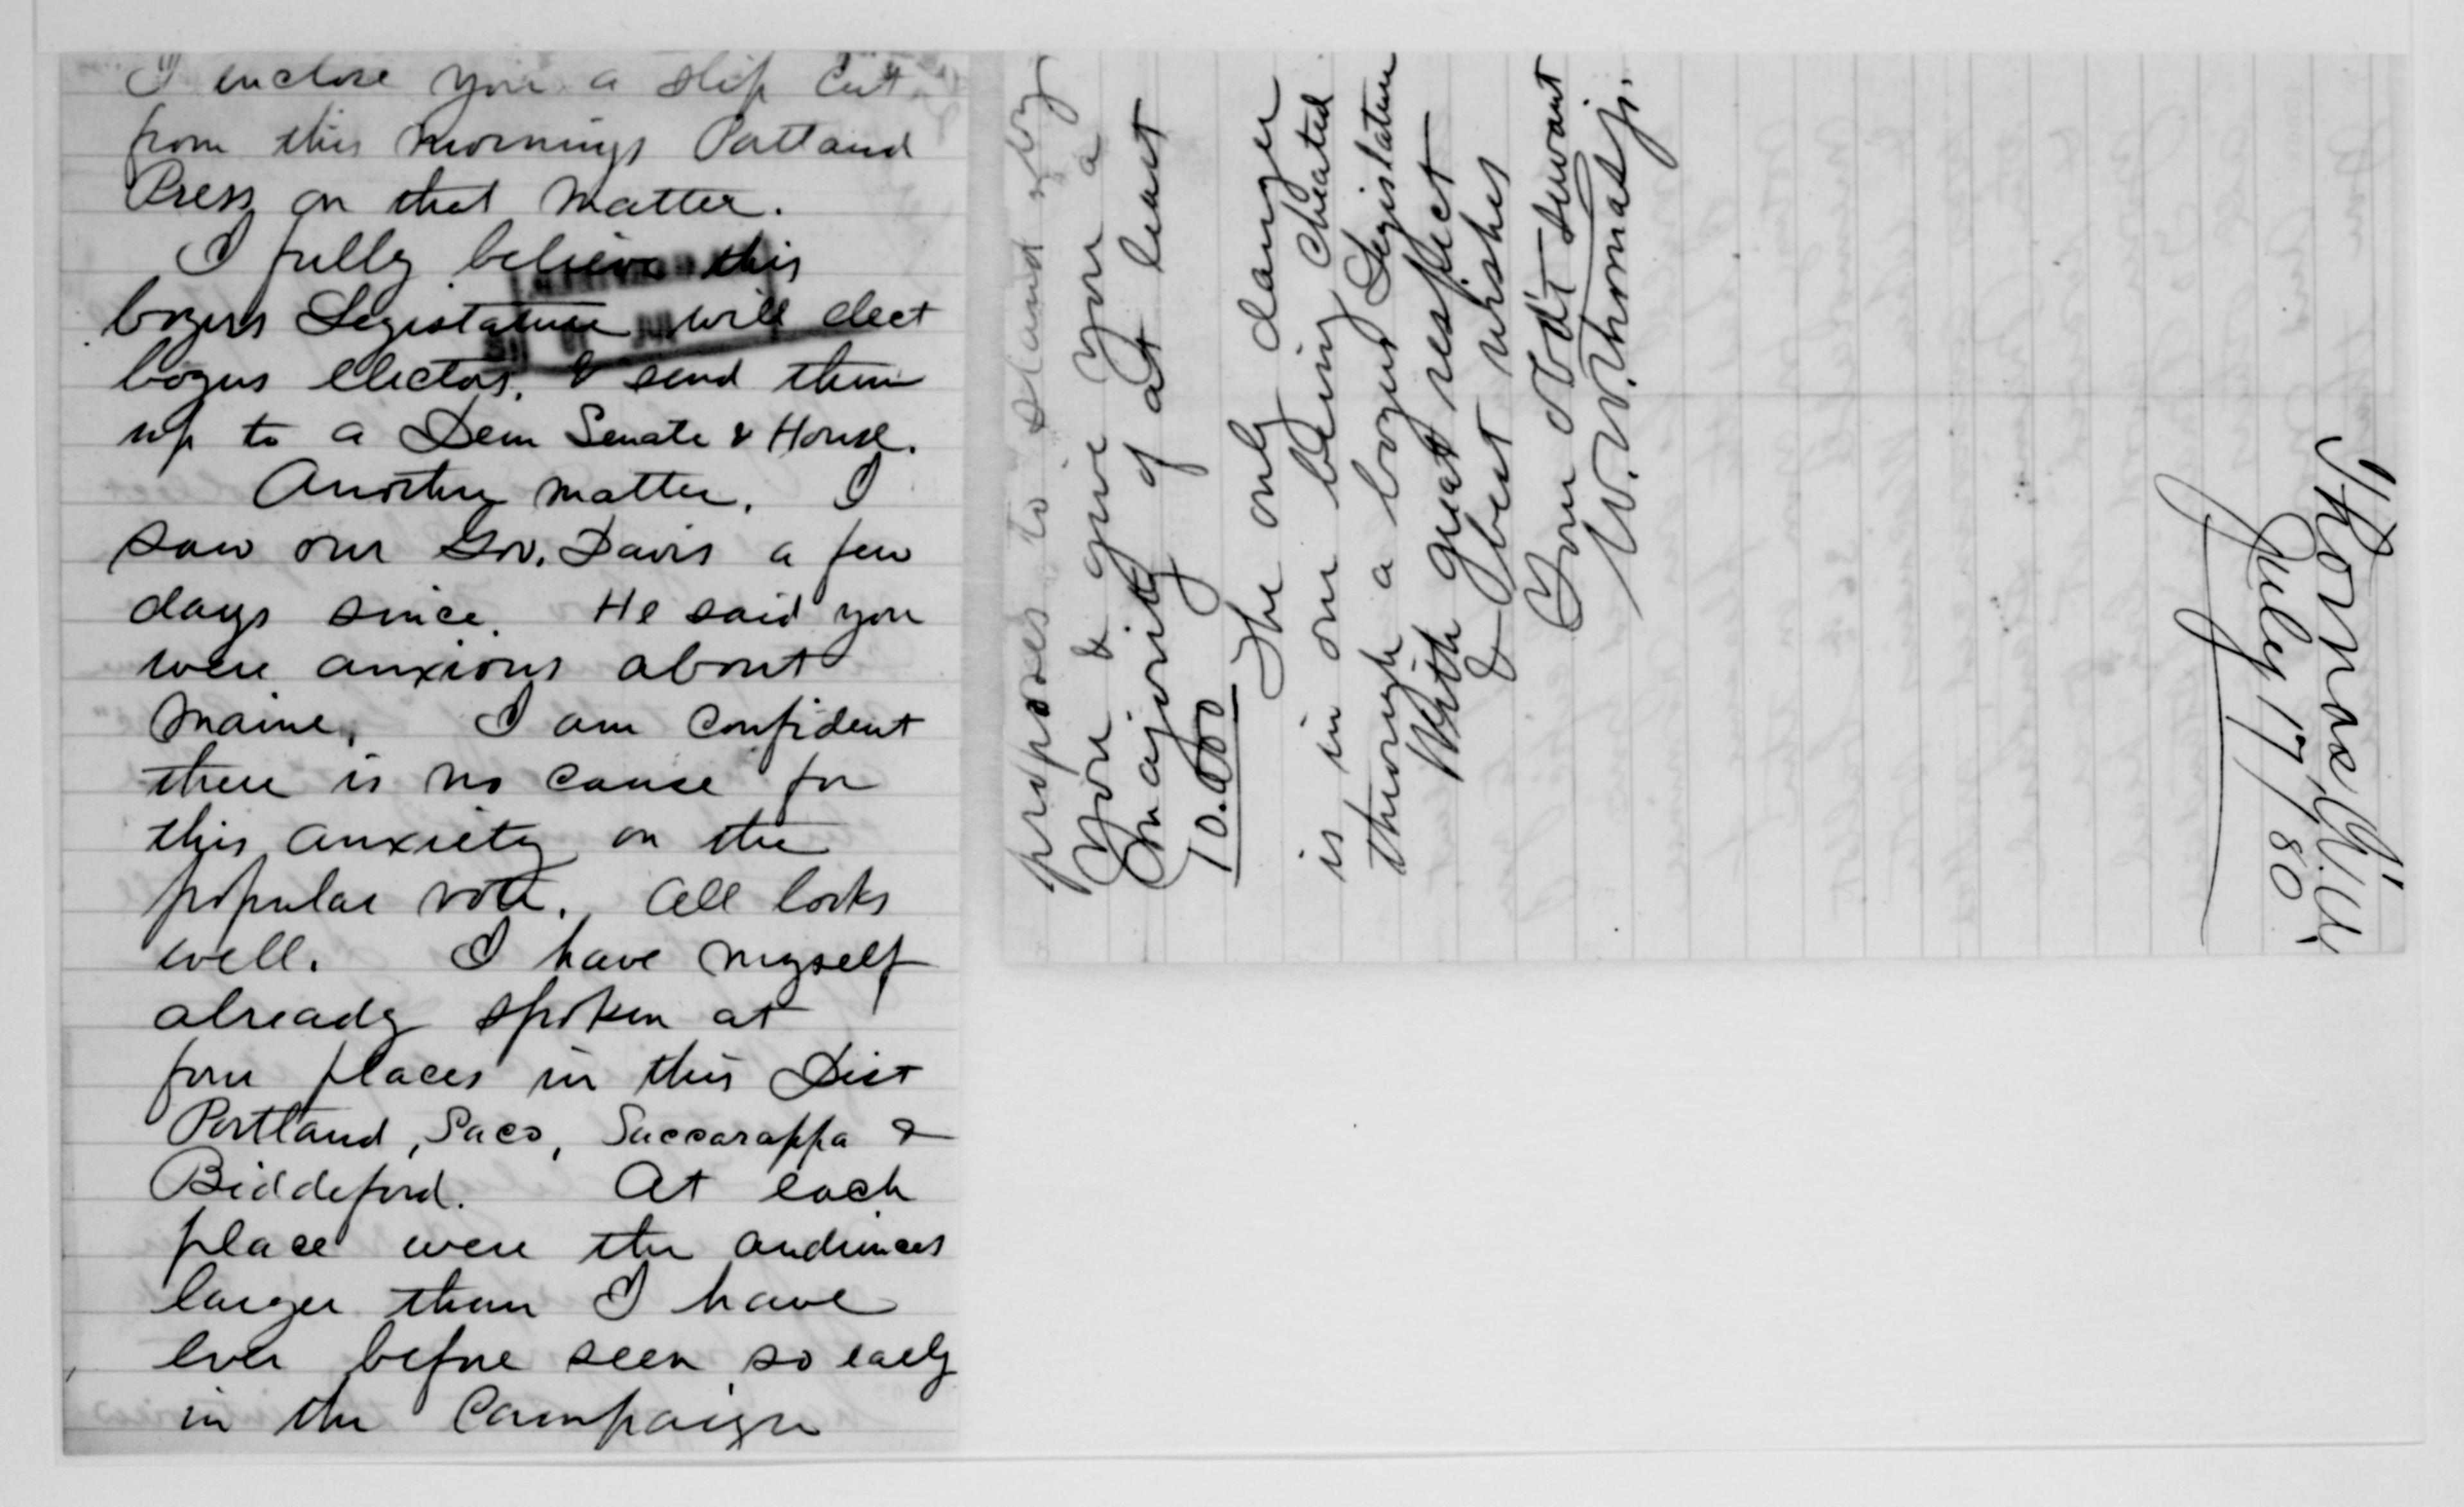 I enclose you a slip cut
from this mornings Portland
Press on that matter.
I fully believe this
bogus Legislature will elect
bogus electors, & send them
up to a Dem Senate & House.
Another matter. I
saw our Gov. Davis a few
days since. He said you
were anxious about
Maine. I am confident
there is no cause for
this anxiety on the
popular vote. All looks
well. I have myself
already spoken at
four places in this Dist
Portland, Saco, Saccarappa &
Biddeford. At each
place were the audiences
larger than I have
ever before seen so early
in the Campaign
proposes to stand by
you & give you a
majority of at least
10.000
The only danger
is in our being cheated
through a bogus Legislature
With great respect
& best wishes
Your Obdt Servant
W. W. Thomas jr.
Thomas, W. W.
July 17/80